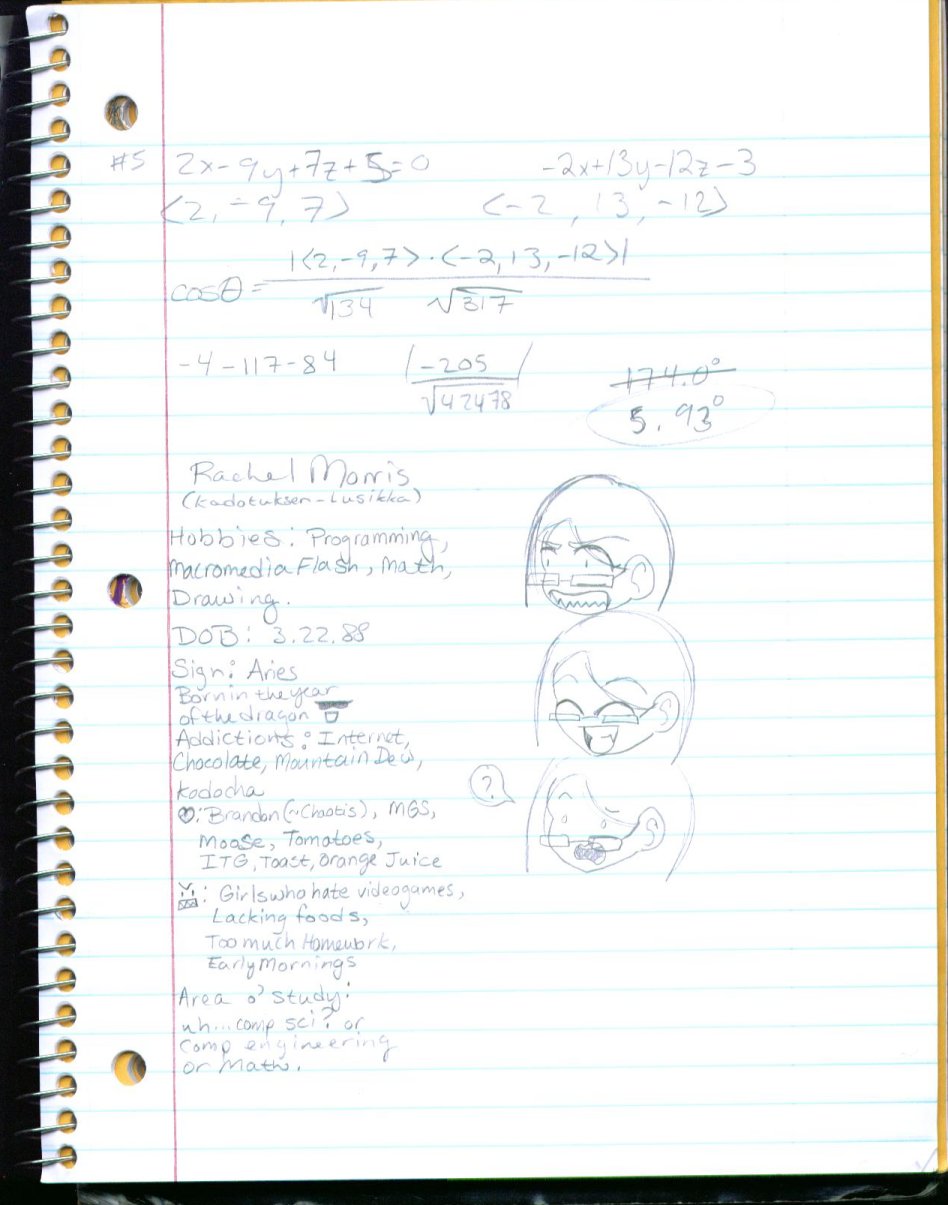 #5 2x-9y+7z+5=0 -2x+13y-12z-3
<2, -9, 7> <-2, 13, -12>
|<2,-9,7>·<-2,13,-12>|
cosθ=
√134 √317
-4-117-84 |-205| 174.0°
√42478 5.93°
Rachel Morris
(Kadotuksen-Lusikka)
Hobbies: Programming,
Macromedia Flash, Math,
Drawing.
DOB: 3.22.88
Sign: Aries
Born in the year
of the dragon
Addictions: Internet,
Chocolate, Mountain Dew,
Kodocha
♥: Brandon (~Chaotis), MGS,
Moose, Tomatoes,
ITG, Toast, Orange Juice
?
: Girls who hate videogames,
Lacking foods,
Too much Homework,
Early Mornings
Area o' study:
uh...comp sci? or
comp engineering
or Math.